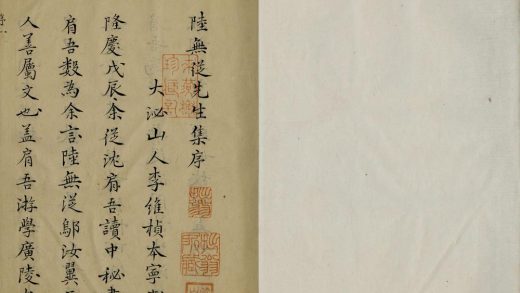 陸無從先生集序
大泌山人李維楨本寧
隆慶戊辰余從沈肩吾讀中秘
肩吾數為余言陸無從鄔汝翼
人善屬文也蓋肩吾游學廣陵